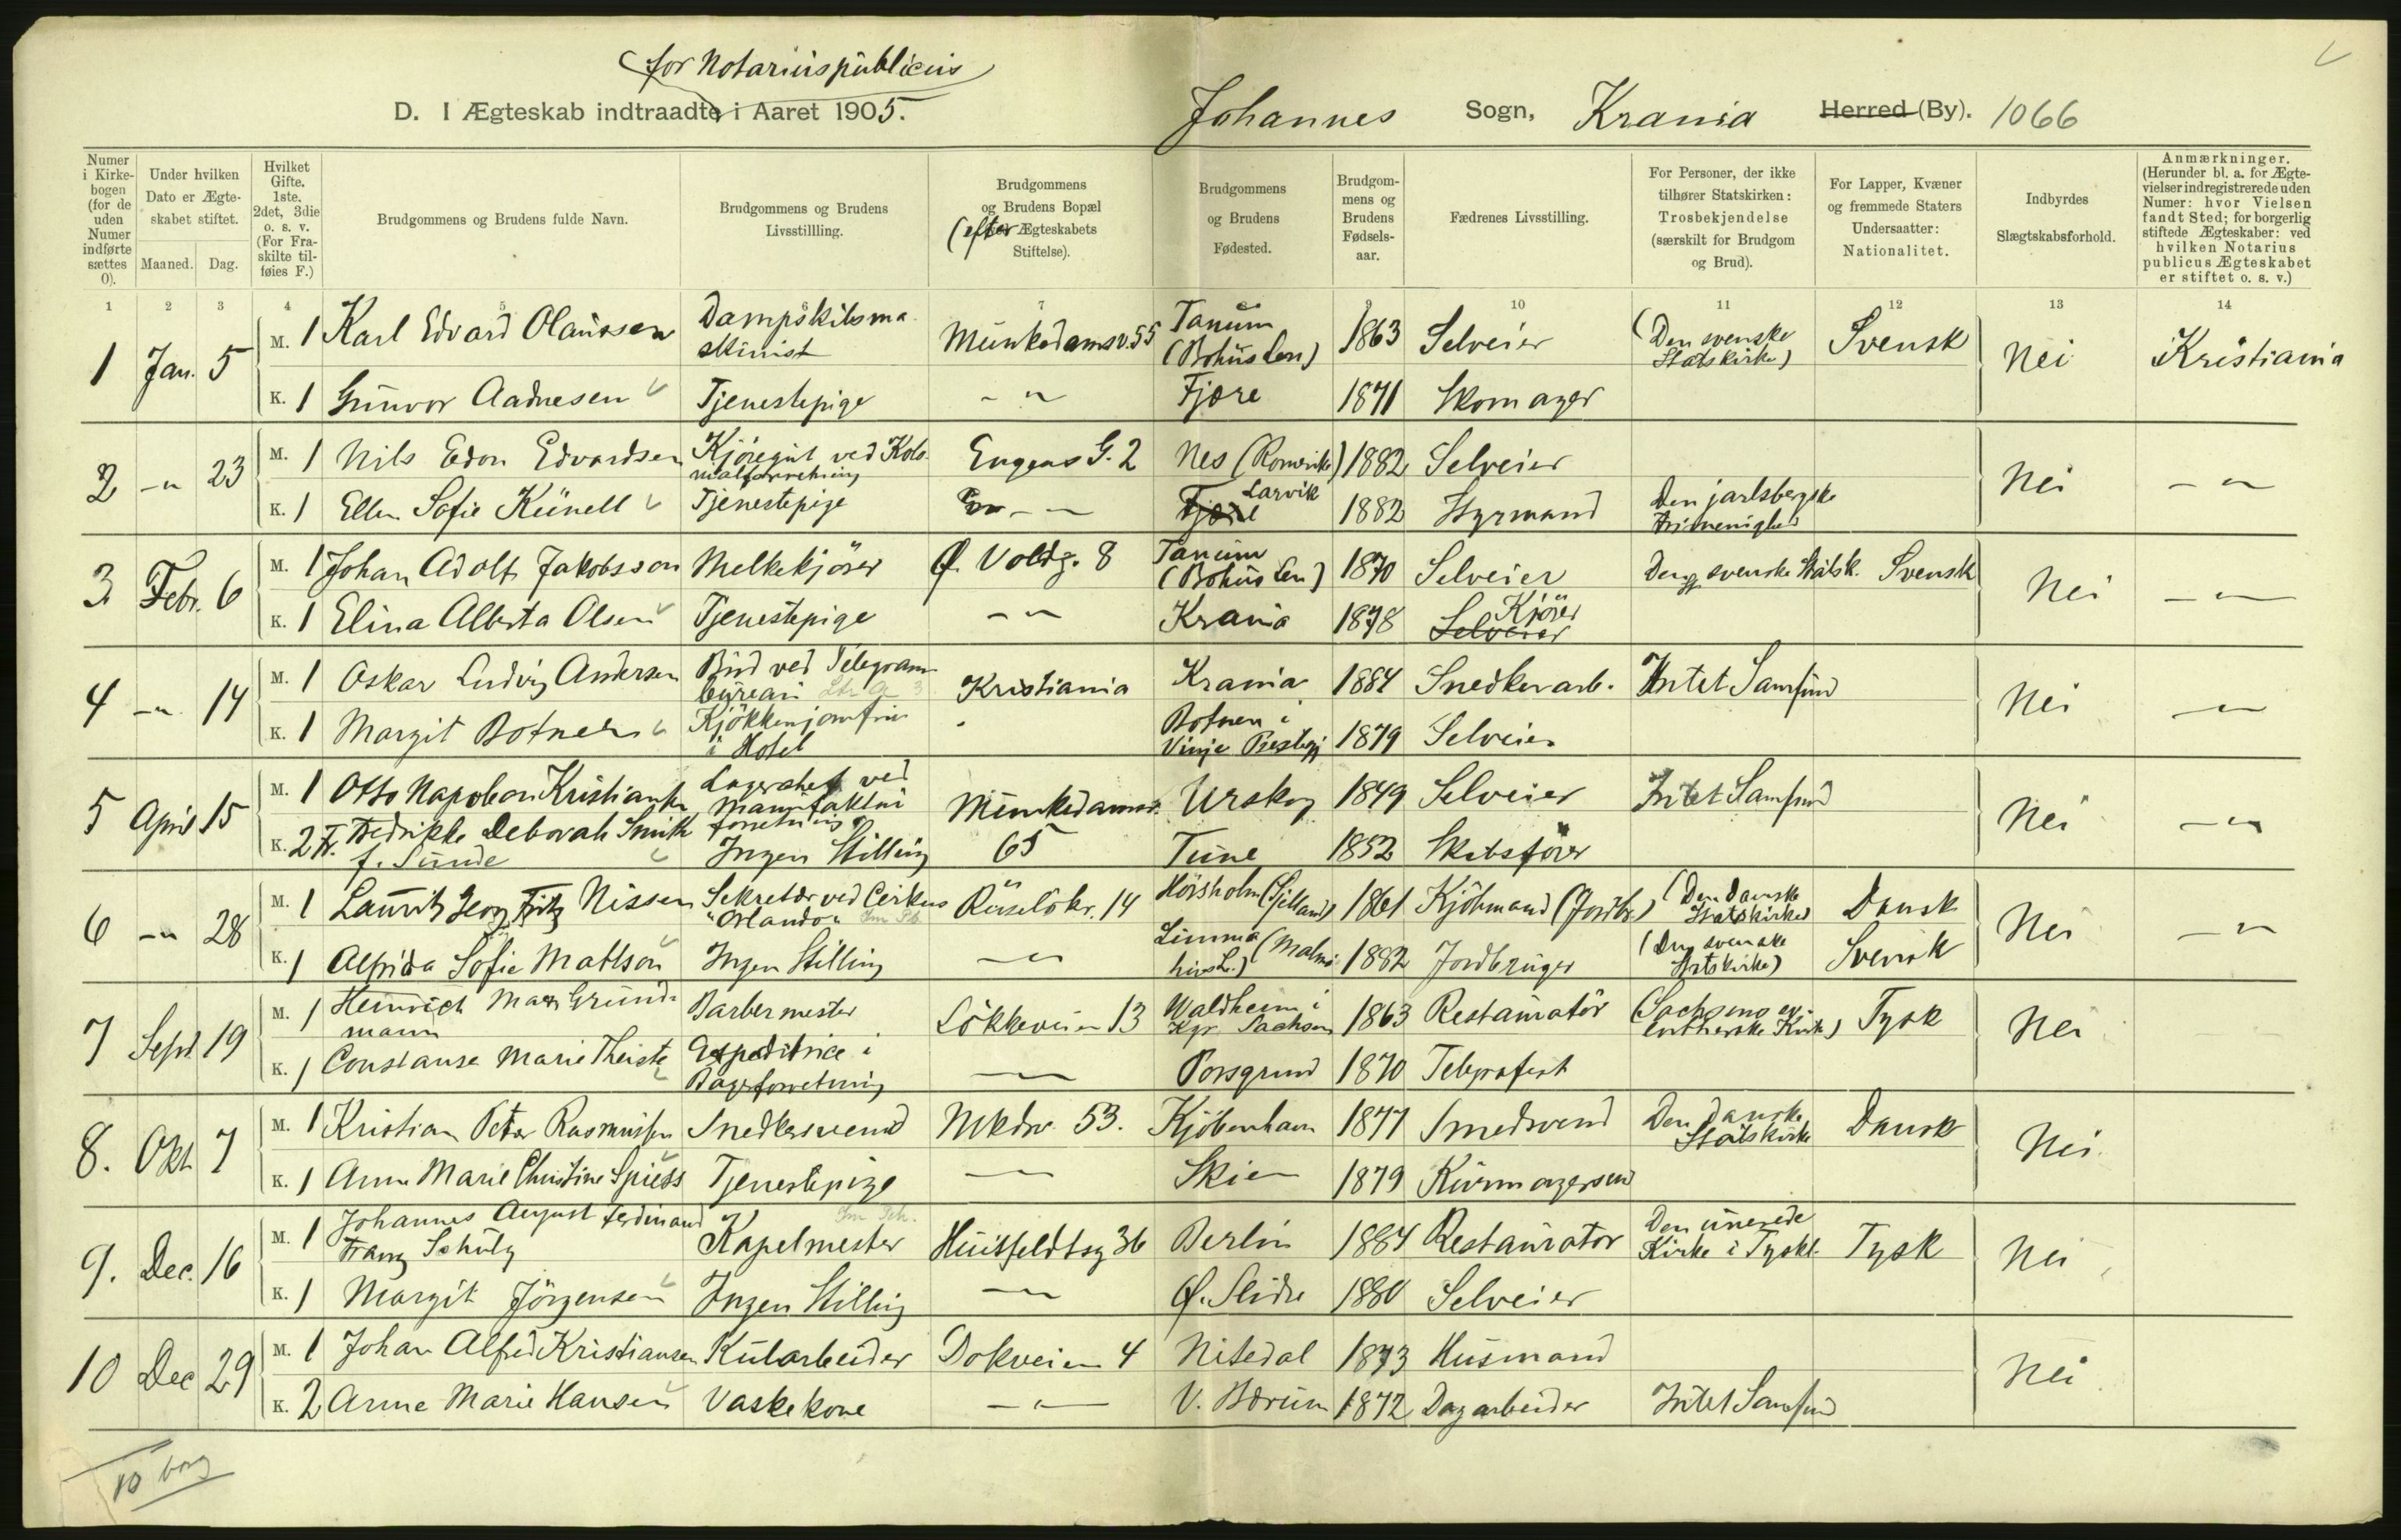 (for Notarius publicus)
D. I Ægteskab indtraadte i Aaret 1905. Johannes Sogn, Krania Herred (By). 1066
Numer i Kirkebogen (for de uden Numer indførte sættes 0).
Under hvilken Dato er Ægteskabet stiftet. Maaned. Dag.
Hvilket Gifte. 1ste. 2det, 3die o. s. v. (For Fraskilte tilføies F.)
Brudgommens og Brudens fulde Navn.
Brudgommens og Brudens Livsstillling.
Brudgommens og Brudens Bopæl (efter Ægteskabets Stiftelse).
Brudgommens og Brudens Fødested.
Brudgommens og Brudens Fødselsaar.
Fædrenes Livsstilling.
For Personer, der ikke tilhører Statskirken: Trosbekjendelse (særskilt for Brudgom og Brud).
For Lapper, Kvæner og fremmede Staters Undersaatter: Nationalitet.
Indbyrdes Slægtskabsforhold.
Anmærkninger. (Herunder bl. a. for Ægtevielser indregistrerede uden Numer: hvor Vielsen fandt Sted; for borgerlig stiftede Ægteskaber: ved hvilken Notarius publicus Ægteskabet er stiftet o. s. v.)
1 2 3 4 5 6 7 8 9 10 11 12 13 14
1 Jan. 5 M. 1 Karl Edvard Olaussen Dampskibsmaskinist Munkedamsv. 55 Tanum (Bohus Len) 1863 Selveier (Den svenske Statskirke) Svensk Nei Kristiania
K. 1 Gunvor Aadnesen Tjenestepige - " - Fjære 1871 Skomager
2 - " 23 M. 1 Nils Edon Edvardsen Kjøregut ved Kolonialforretning Engens G. 2 Nes (Romerike) 1882 Selveier Nei - " -
K. 1 Ellen Sofie Künell Tjenestepige - " - Fjære Larvik 1882 Styrmand Den jarlsbergske frimenighed
3 Febr. 6 M. 1 Johan Adolf Jakobsson Melkekjører Ø. Voldg. 8 Tanum (Bohus Len) 1870 Selveier Den svenske Statsk. Svensk Nei - " -
K. 1 Elina Alberta Olsen Tjenestepige - " - Krania 1878 Selveier Kjører
4 - " 14 M. 1 Oskar Ludvig Andersen Bud ved Telegrambureau Kristiania Krania 1884 Snedkerarb. Intet Samfund Nei - " -
K. 1 Margit Botnen Kjøkkenjomfru i Hotel Botnen i Vinje Prestegj 1879 Selveier
5 April 15 M. 1 Otto Napoleon Kristiansen Lagerchef ved Manufakturforretning Munkedamsv. 65 Urskog 1849 Selveier Intet Samfund Nei - " -
K. 2 F. Fredrikke Deborah Smith f. Sunde Ingen Stilling Tune 1852 Skibsfører
6 - " 28 M. 1 Lauritz Georg Fritz Nissen Sekretær ved Cirkus "Orlando" Ruseløkv. 14 Hørsholm (Sjelland) 1861 Kjøbmand (Jordbr.) (Den danske Statskirke) Dansk Nei - " -
K. 1 Alfrida Sofie Mattson Ingen Stilling - " - Limma (Malmøhus L.) 1882 Jordbruger (Den svenske Statskirke) Svensk
7 Sept. 19 M. 1 Heinrich Max Grundmann Barbermester Løkkeveien 13 Waldheim i Kgr. Sachsen 1863 Restauratør (Sachsens ev. lutherske Kirke) Tysk Nei
K. 1 Constanse Marie Theiste Expeditrice i Bagerforretning - " - Porsgrund 1870 Telegrafist
8. Okt. 7 M. 1 Kristian Peter Rasmussen Snedkersvend Mkdv. 53. Kjøbenhavn 1877 Smedsvend Den danske Statskirke Dansk Nei.
K. 1 Anna Marie Christine Spiess Tjenestepige - " - Skien 1879 Kurvmagersvend
9. Dec. 16 M. 1 Johannes August Ferdinand Franz Schulz Kapelmester Huitfeldtsg 36 Berlin 1884 Restauratør Den unerede Kirke i Tyskl. Tysk Nei
K. 1 Margit Jørgensen Ingen Stilling - " - Ø. Slidre 1880 Selveier
10 Dec 29 M. 1 Johan Alfred Kristiansen Kularbeider Dokveien 4 Nitedal 1873 Husmand Nei
K. 2 Anne Marie Hansen Vaskekone - " - V. Bærum 1872 Dagarbeider Intet Samfund
10 borg